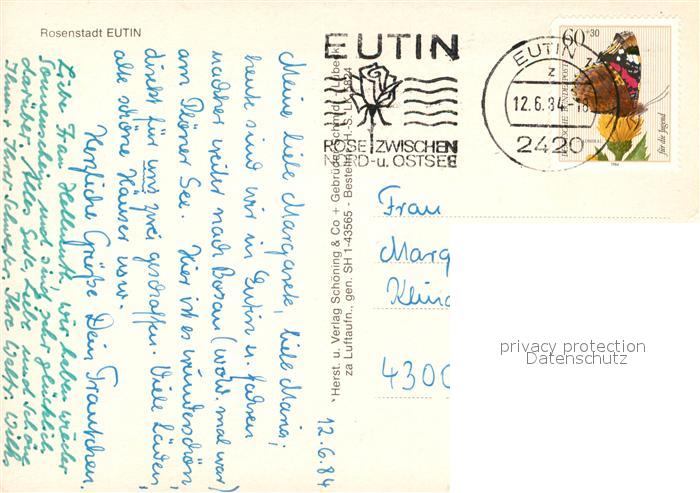 Rosenstadt EUTIN
12.6.84
Meine liebe Margarete, liebe Maria;
heute sind wir in Eutin u. fahren
nachher weiter nach Bosau (wo W. mal war)
am Plöner See. Hier ist es wunderschön,
direkt für uns zwei geschaffen. Viele Läden,
alte schöne Häuser usw.
Herzliche Grüße Dein Trautchen.
Liebe Frau Hellmuth, wir haben wieder
Sonnenschein und sind sehr glücklich
darüber. Alles Gute, Liebe und Schöne
Ihnen u. Ihrer Schwester, Ihre
Herst. u. Verlag Schöning & Co + Gebrüder Schmidt, Lübeck
za Luftaufn., gen. SH 1-43565 - Bestellnr.
EUTIN
ROSE ZWISCHEN
NORD-u. OSTSEE
EUTIN
z
12.6.84-18
2420
60+30
DEUTSCHE BUNDESPOST
für die Jugend
1984
Frau
Marg
Klein
4300
privacy protection
Datenschutz